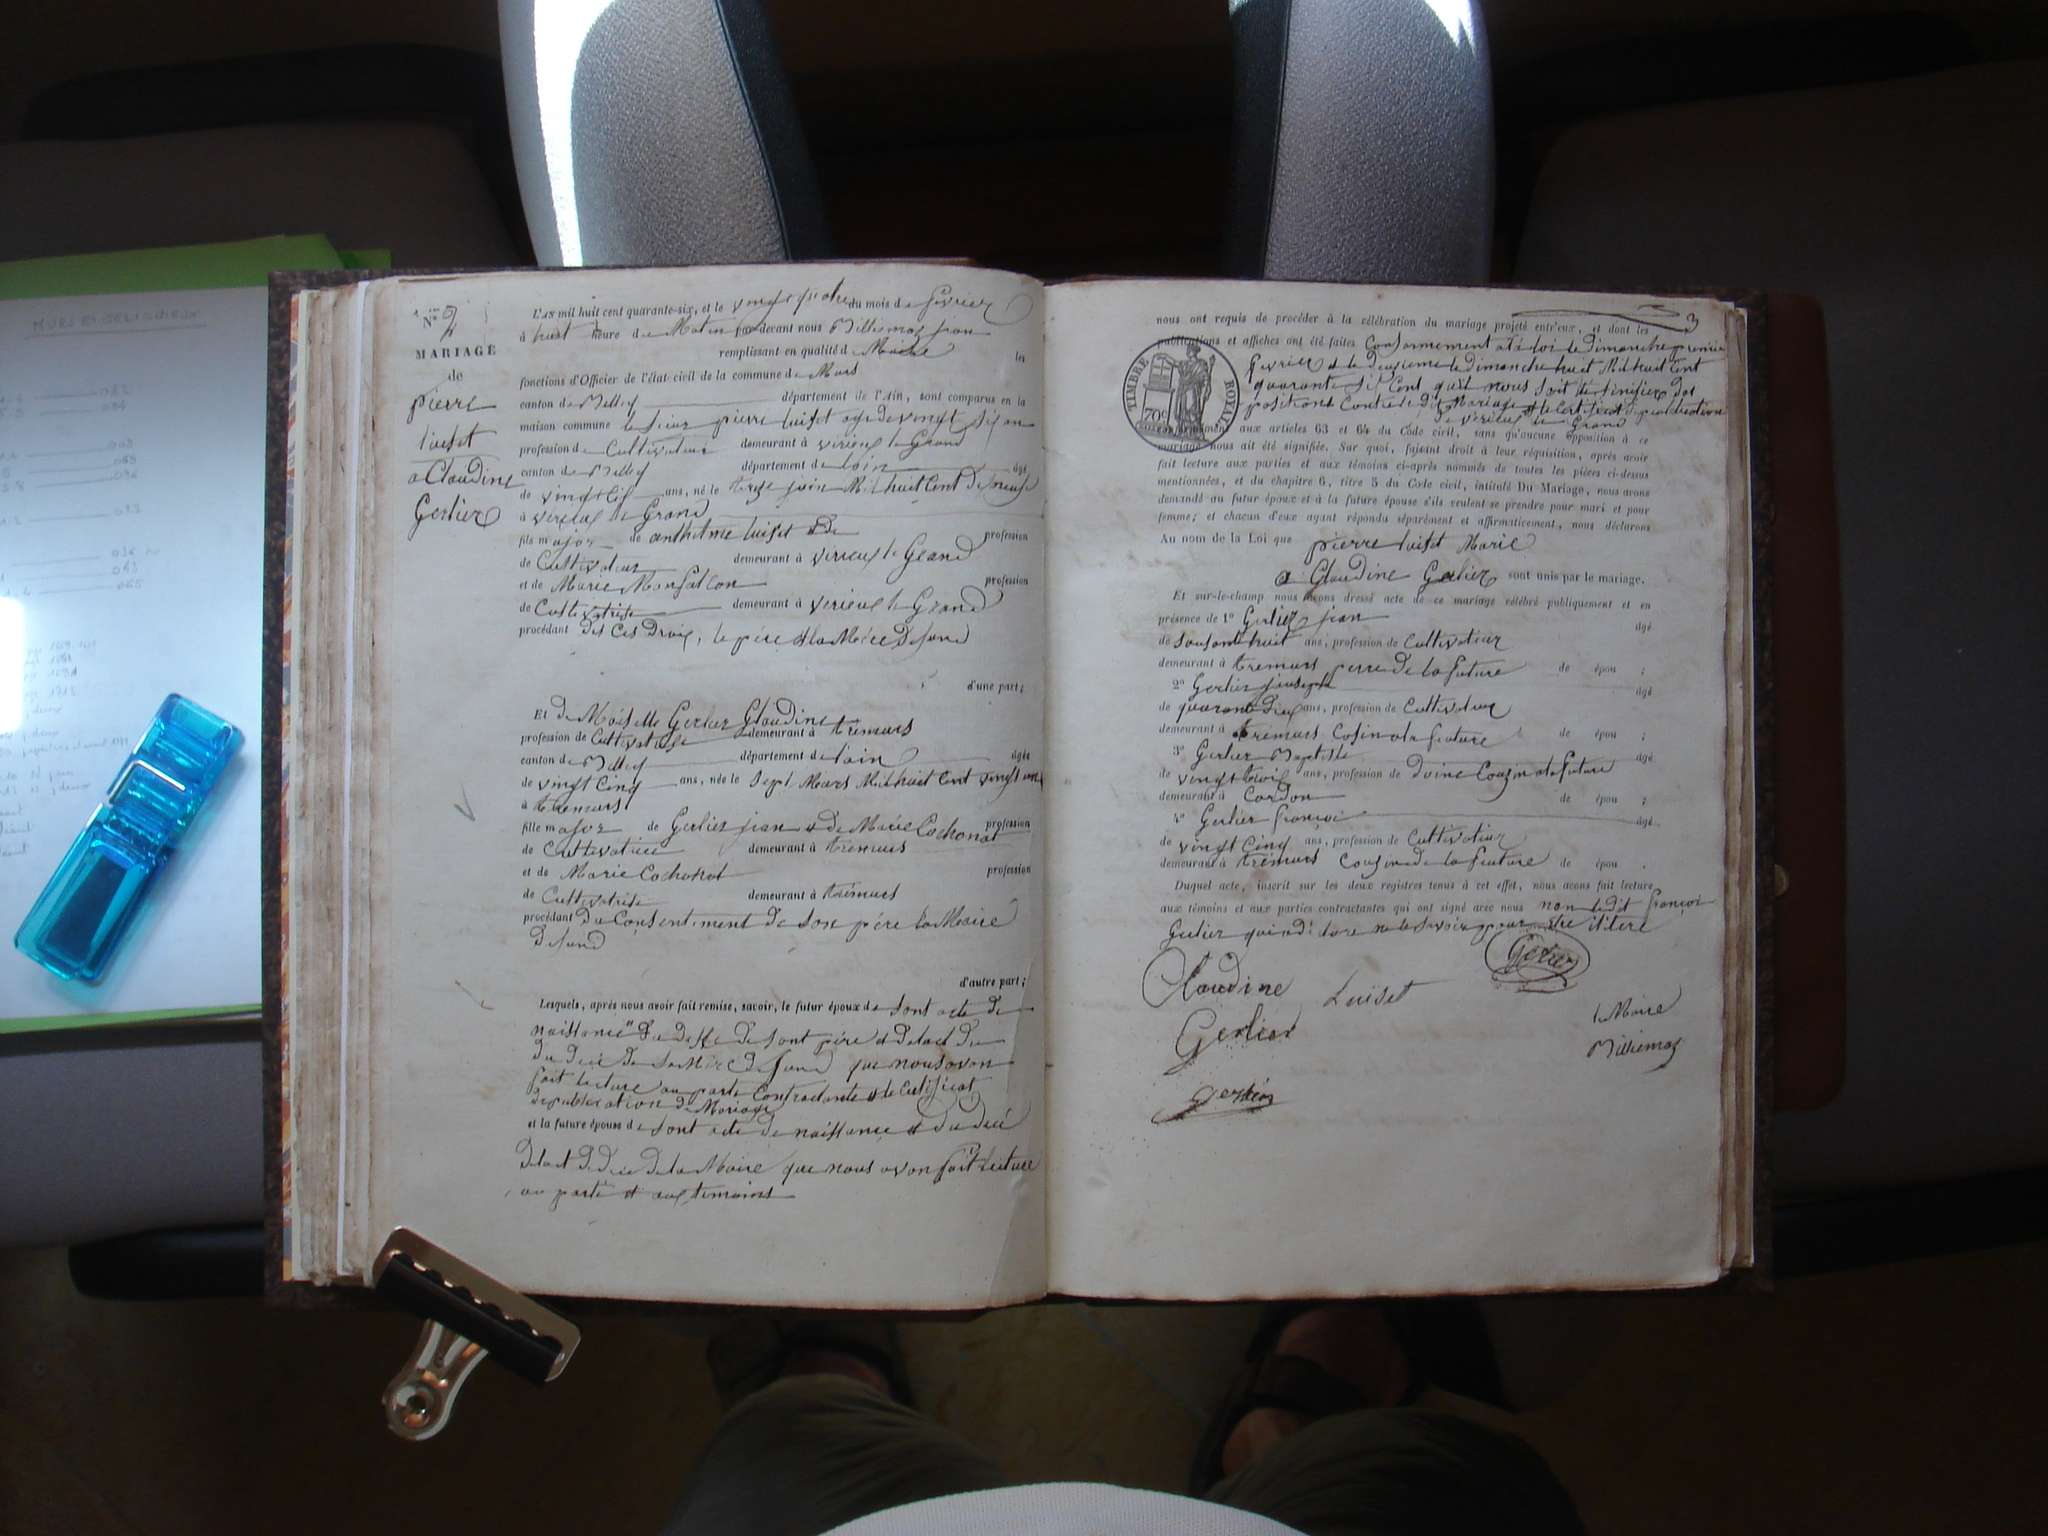 MURS ET GELIGNIEUX
N° 2
MARIAGE
de
pierre
luiset
a Claudine
Gerlier
L'AN mil huit cent quarante-six, et le vingt quatre du mois de fevrier
à huit heure du Matin par-devant nous Milliemaz jean
remplissant en qualité d Maire les
fonctions d'Officier de l'état civil de la commune de Murs
canton de Belley département de l'Ain, sont comparus en la
maison commune le sieur pierre luiset age de vingt six an
profession de Cultivateur demeurant à virieux le Grand
canton de Belley département de lain âgé
de vingt six ans, né le treze juin Mil huit Cent dis neuf
à virieux le Grand
fils major de anthelme luiset profession
de Cultivateur demeurant à virieux le Grand
et de Marie Monfallcon profession
de Cultivatrise demeurant à virieux le Grand
procédant des Ces Droix, le pére et la Mére Defund
d'une part;
Et de Moiselle Gerlier Glaudine
profession de Cultivatrise demeurant à tremurs
canton de Belley département de lain âgée
de vingt Cinq ans, née le Sept Mars Mil huit Cent vingt un
à tremurs
fille major de Gerlier jean et de Marie Cochonat profession
de Cultivatrice demeurant à trémurs
et de Marie Cochonat profession
de Cultivatrise demeurant à trémurs
procédant du Consentiment de Son pére la Maire
Defund
d'autre part;
Lesquels, après nous avoir fait remise, savoir, le futur époux de Sont acte de
naissance de Sont pére
Defund que nous avon
fait lecture au parte Contractante et le Certificat
de publication de Mariage
et la future épouse de Sont acte de naissance et du decé
de la Maire que nous avon fait lecture
au parte et aux temoins
3
nous ont requis de procéder à la célébration du mariage projeté entr'eux, et dont les
publications et affiches ont été faites Conformement a la loi le Dimanche premier
fevrier et le deuxieme le dimanche huit Mil huit Cent
quarante Six nous Soit
positions Contre le dit Mariage et le Certificat de publication
de virieux le Grand
TIMBRE ROYAL
70c
aux articles 63 et 64 du Code civil, sans qu'aucune opposition à ce
mariage nous ait été signifiée. Sur quoi, faisant droit à leur réquisition, après avoir
fait lecture aux parties et aux témoins ci-après nommés de toutes les pièces ci-dessus
mentionnées, et du chapitre 6, titre 5 du Code civil, intitulé Du Mariage, nous avons
demandé au futur époux et à la future épouse s'ils veulent se prendre pour mari et pour
femme; et chacun d'eux ayant répondu séparément et affirmativement, nous déclarons
Au nom de la Loi que pierre luiset Marié
a Glaudine Gerlier sont unis par le mariage.
Et sur-le-champ nous avons dressé acte de ce mariage célébré publiquement et en
présence de 1° Gerlier jean âgé
de Soisante huit ans, profession de Cultivateur
demeurant à trémurs perre de la future de épou ;
2° Gerlier jauseph âgé
de quarante Dieu ans, profession de Cultivateur
demeurant à tremurs Cosin a la future de épou ;
3° Gerlier Baptiste âgé
de vingt trois ans, profession de Doine Cousin a la future
demeurant à Cordon de épou ;
4° Gerlier françoi âgé
de vingt Cinq ans, profession de Cultivateur
demeurant à trémurs Cousin de la future de épou .
Duquel acte, inscrit sur les deux registres tenus à cet effet, nous avons fait lecture
aux témoins et aux parties contractantes qui ont signé avec nous non ledit françoi
Gerlier qui a di lare ne le Savoir pour etre ilitere
Gerlier
Claudine
Gerlier
Luiset
le Maire
Milliemaz
gerlier